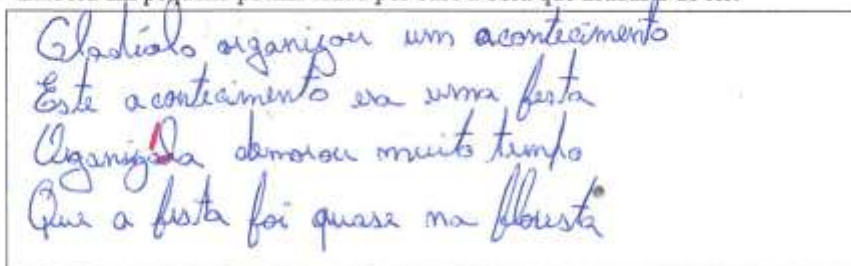 Gladíolo organizou um acontecimento
Este acontecimento era uma festa
Organizada demorou muito tempo
Que a festa foi quase na floresta